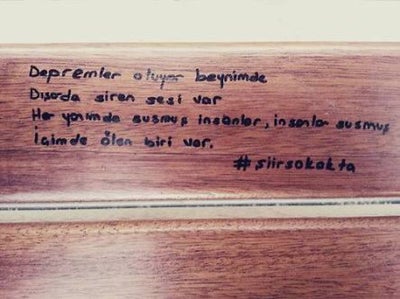 Depremler oluyor beynimde
Dışarda siren sesi var
Her yanımda susmuş insanlar, insanlar susmuş
İçimde ölen biri var.
#siirsokakta